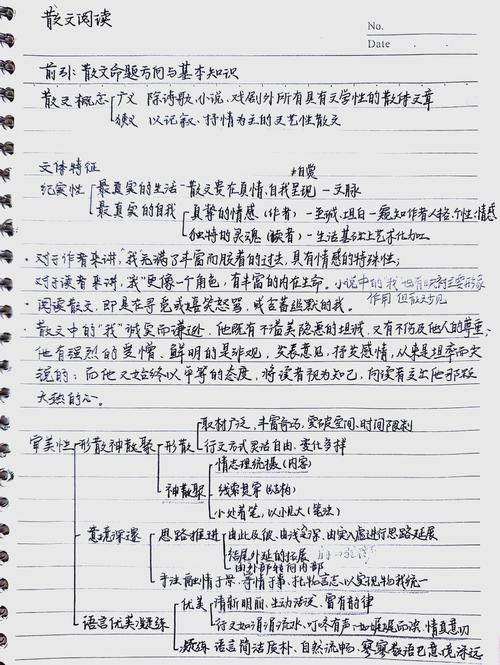 散文阅读
No.
Date
前引: 散文命题方向与基本知识
散文概念 广义 除诗歌、小说、戏剧外所有具有文学性的散体文章
狭义 以记叙、抒情为主的文艺性散文
文体特征
纪实性 最真实的生活 散文贵在真情、自我呈现 — 文脉
最真实的自我 真挚的情感 (作者) — 至诚、坦白 — 窥知作者人格、个性、情感
独特的灵魂 (读者) — 生活基础上艺术化加工
· 对于作者来讲,"我"充满了丰富而胶着的过去,具有情感的特殊性;
对于读者来讲,"我"更像一个角色,有丰富的内在生命。小说中的"我"也有
作用 但散文少见
· 阅读散文,即是在寻觅或嬉笑怒骂,或含蓄幽默的我。
· 散文中的"我"诚实而谦逊,他既有不溢美隐恶的坦诚,又有不伤及他人的尊重;
他有强烈的爱憎、鲜明的是非观,发表意见,抒发感情,从来是坦率而大
的;而他又始终以平等的态度,将读者视为知己,向读者交出他那颗
火热的心。
审美性 形散神凝聚 形散 取材广泛,丰富奇巧,突破空间、时间限制
行文方式灵活自由、变化多样
神凝聚 情志理统摄 (内容)
线索贯穿 (结构)
小处着笔,以小见大 (笔法)
意境深邃 思路推进 由此及彼、由浅入深、由实入虚进行思路延展
结尾外延的拓展
由外部转向内部
手法 融情于景、寄情于事、托物言志,以实现物我统一
语言优美凝练 优美 清新明丽、生动活泼、富有韵律
行文如涓涓流水,叮咚有声,如娓娓而谈,情真意切
凝练 语言简洁质朴、自然流畅,寥寥数语已意境深远